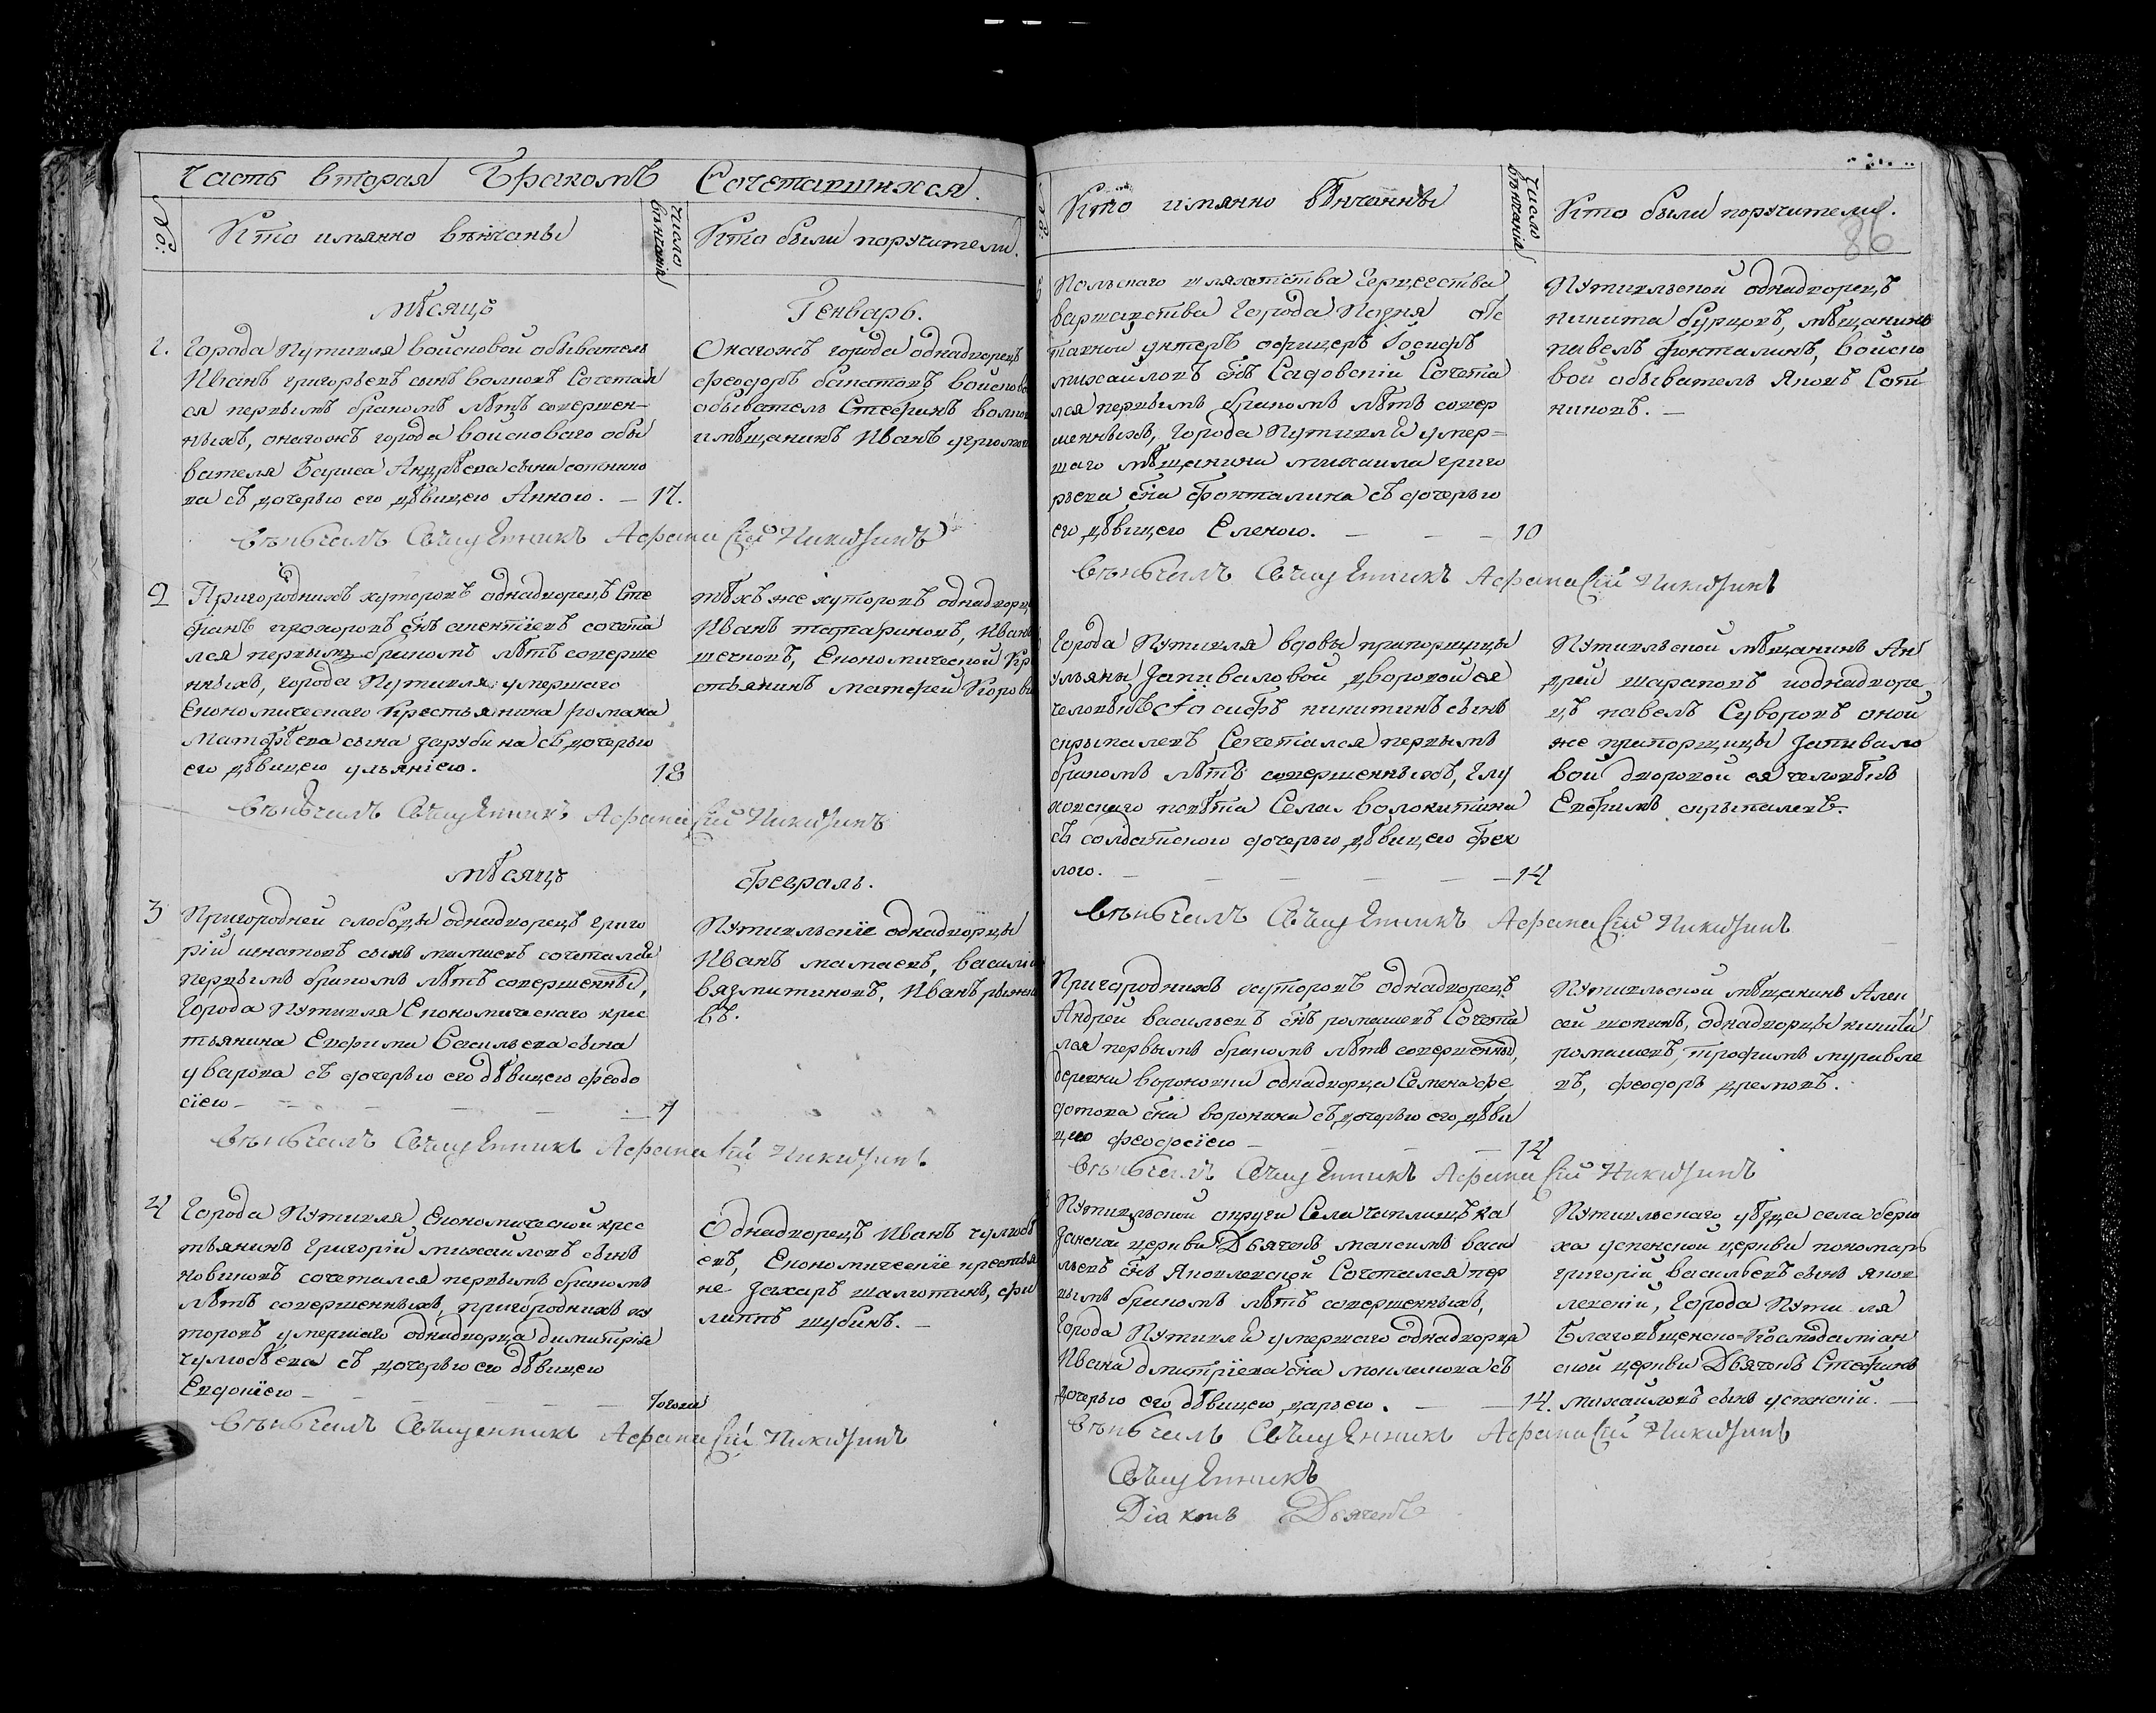 Часть вторая Бракомъ Сочетавшихся.
№:
Кто имянно вѣнчаны
Число вѣнчанія
Кто были поручители.
мѣсяцъ
Генварь.
1. Города Путивля войсковой обыватель
Иванъ григорьевъ сынъ волковъ Сочетал
ся первымъ бракомъ лѣтъ совершен-
ныхъ, оногожъ города войсковаго обы
вателя Бориса Андрѣева сына
съ дочерью его дѣвицею Анною. — 17.
Оногожъ города однадворецъ
феодоръ войсково
обыватель Стефанъ волко
имѣщанинъ Иванъ
вѣнчалъ Священникъ Афанасій Никитинъ
2 Пригородныхъ хуторовъ однадворецъ Сте
фанъ прохоровъ снъ сочета
лся первымъ бракомъ лѣтъ соверше
нныхъ, города Путивля умершаго
Економическаго Крестьянина романа
Матфѣева сына зарубина съ дочерью
его дѣвицею ульяніею. 18
тѣхъ же хуторовъ однадворц
Иванъ татариновъ, Иванъ
Економической Кр
стьянинъ матфей
вѣнчалъ Священникъ Афанасій Никитинъ
мѣсяцъ
февраль.
3 Пригородней слободы однадворецъ григо
рій игнатовъ сынъ мамаевъ сочетался
первымъ бракомъ лѣтъ совершенны,
Города Путивля Економическаго крес
тьянина Евфима Васильева сына
уварова съ дочерью его дѣвицею феодо
сіею — 7
Путивльскіе однадворцы
Иванъ мамаевъ, василій
вязмитиновъ, Иванъ
въ.
вѣнчалъ Священникъ Афанасій Никитинъ
4 Города Путивля Економической крес
тьянинъ григорій михайловъ сынъ
новиковъ сочетался первымъ бракомъ
лѣтъ совершенныхъ, пригородныхъ ху
торовъ умершаго однадворца димитрія
съ дочерью его дѣвицею
Евдокіею — 7 того
Однадворецъ Иванъ
евъ, Економическіе крестья
не Захаръ фи
липпъ шубинъ. —
вѣнчалъ Священникъ Афанасій Никитинъ
№:
Кто имянно вѣнчанны
Число вѣнчанія
Кто были поручители.
86
Польскаго шляхетства
варшавства города от
тавной унтеръ офицеръ Іосифъ
михайловъ снъ Садовскій Сочета
лся первымъ бракомъ лѣтъ совер
шенныхъ, города Путивля умер=
шаго мѣщанина михаила григо
рьева сна фокталина съ дочерью
его дѣвицею Еленою. — 10
Путивльской однадворецъ
никита бурцовъ, мѣщанинъ
павелъ фокталинъ, войско
вой обыватель Яковъ Сотни
никовъ. —
вѣнчалъ Священникъ Афанасій Никитинъ
города Путивля вдовы прапорщицы
ульяны дворовой ея
человѣкъ Іосифъ никитинъ сынъ
скрыпалевъ Сочетался первымъ
бракомъ лѣтъ совершенныхъ, глу
ховскаго повѣта Села волокитина
съ солдатскою дочерью дѣвицею фек
лою. — 14
Путивльской мѣщанинъ Ан
дрей шараповъ иоднадворе
цъ павелъ Суворовъ оной
же прапорщицы
вой дворовой ея человѣкъ
Евфимъ скрыпалевъ.
вѣнчалъ Священникъ Афанасій Никитинъ
Пригородныхъ хуторовъ однадворецъ
Андрей васильевъ снъ ромашевъ Сочета
лся первымъ бракомъ лѣтъ совершенны,
деревни вороновки однадворца Семена фе
дотова сна воронина съ дочерью его дѣви
цею феодосіею — 14
Путивльской мѣщанинъ Алек
сей однадворцы никита
ромашевъ, трофимъ муравле
въ, феодоръ
вѣнчалъ Священникъ Афанасій Никитинъ
Путивльской округи Села чаплищъ ка
занской церкви Дьячекъ максимъ васи
льевъ снъ Яковлевской Сочетался пер
вымъ бракомъ лѣтъ совершенныхъ,
Города Путивля умершаго однадворца
Ивана дмитріева сна съ
дочерью его дѣвицею дарьею. — 14.
Путивльскаго уѣзда села берю
ха успенской церкви пономарь
григорій васильевъ сынъ яков
левскій, города Путивля
Благовѣщенско-Космодаміан
ской церкви Дьячекъ Стефанъ
михайловъ сынъ успенскій. —
вѣнчалъ Священникъ Афанасій Никитинъ
Священникъ
Діаконъ Дьячекъ